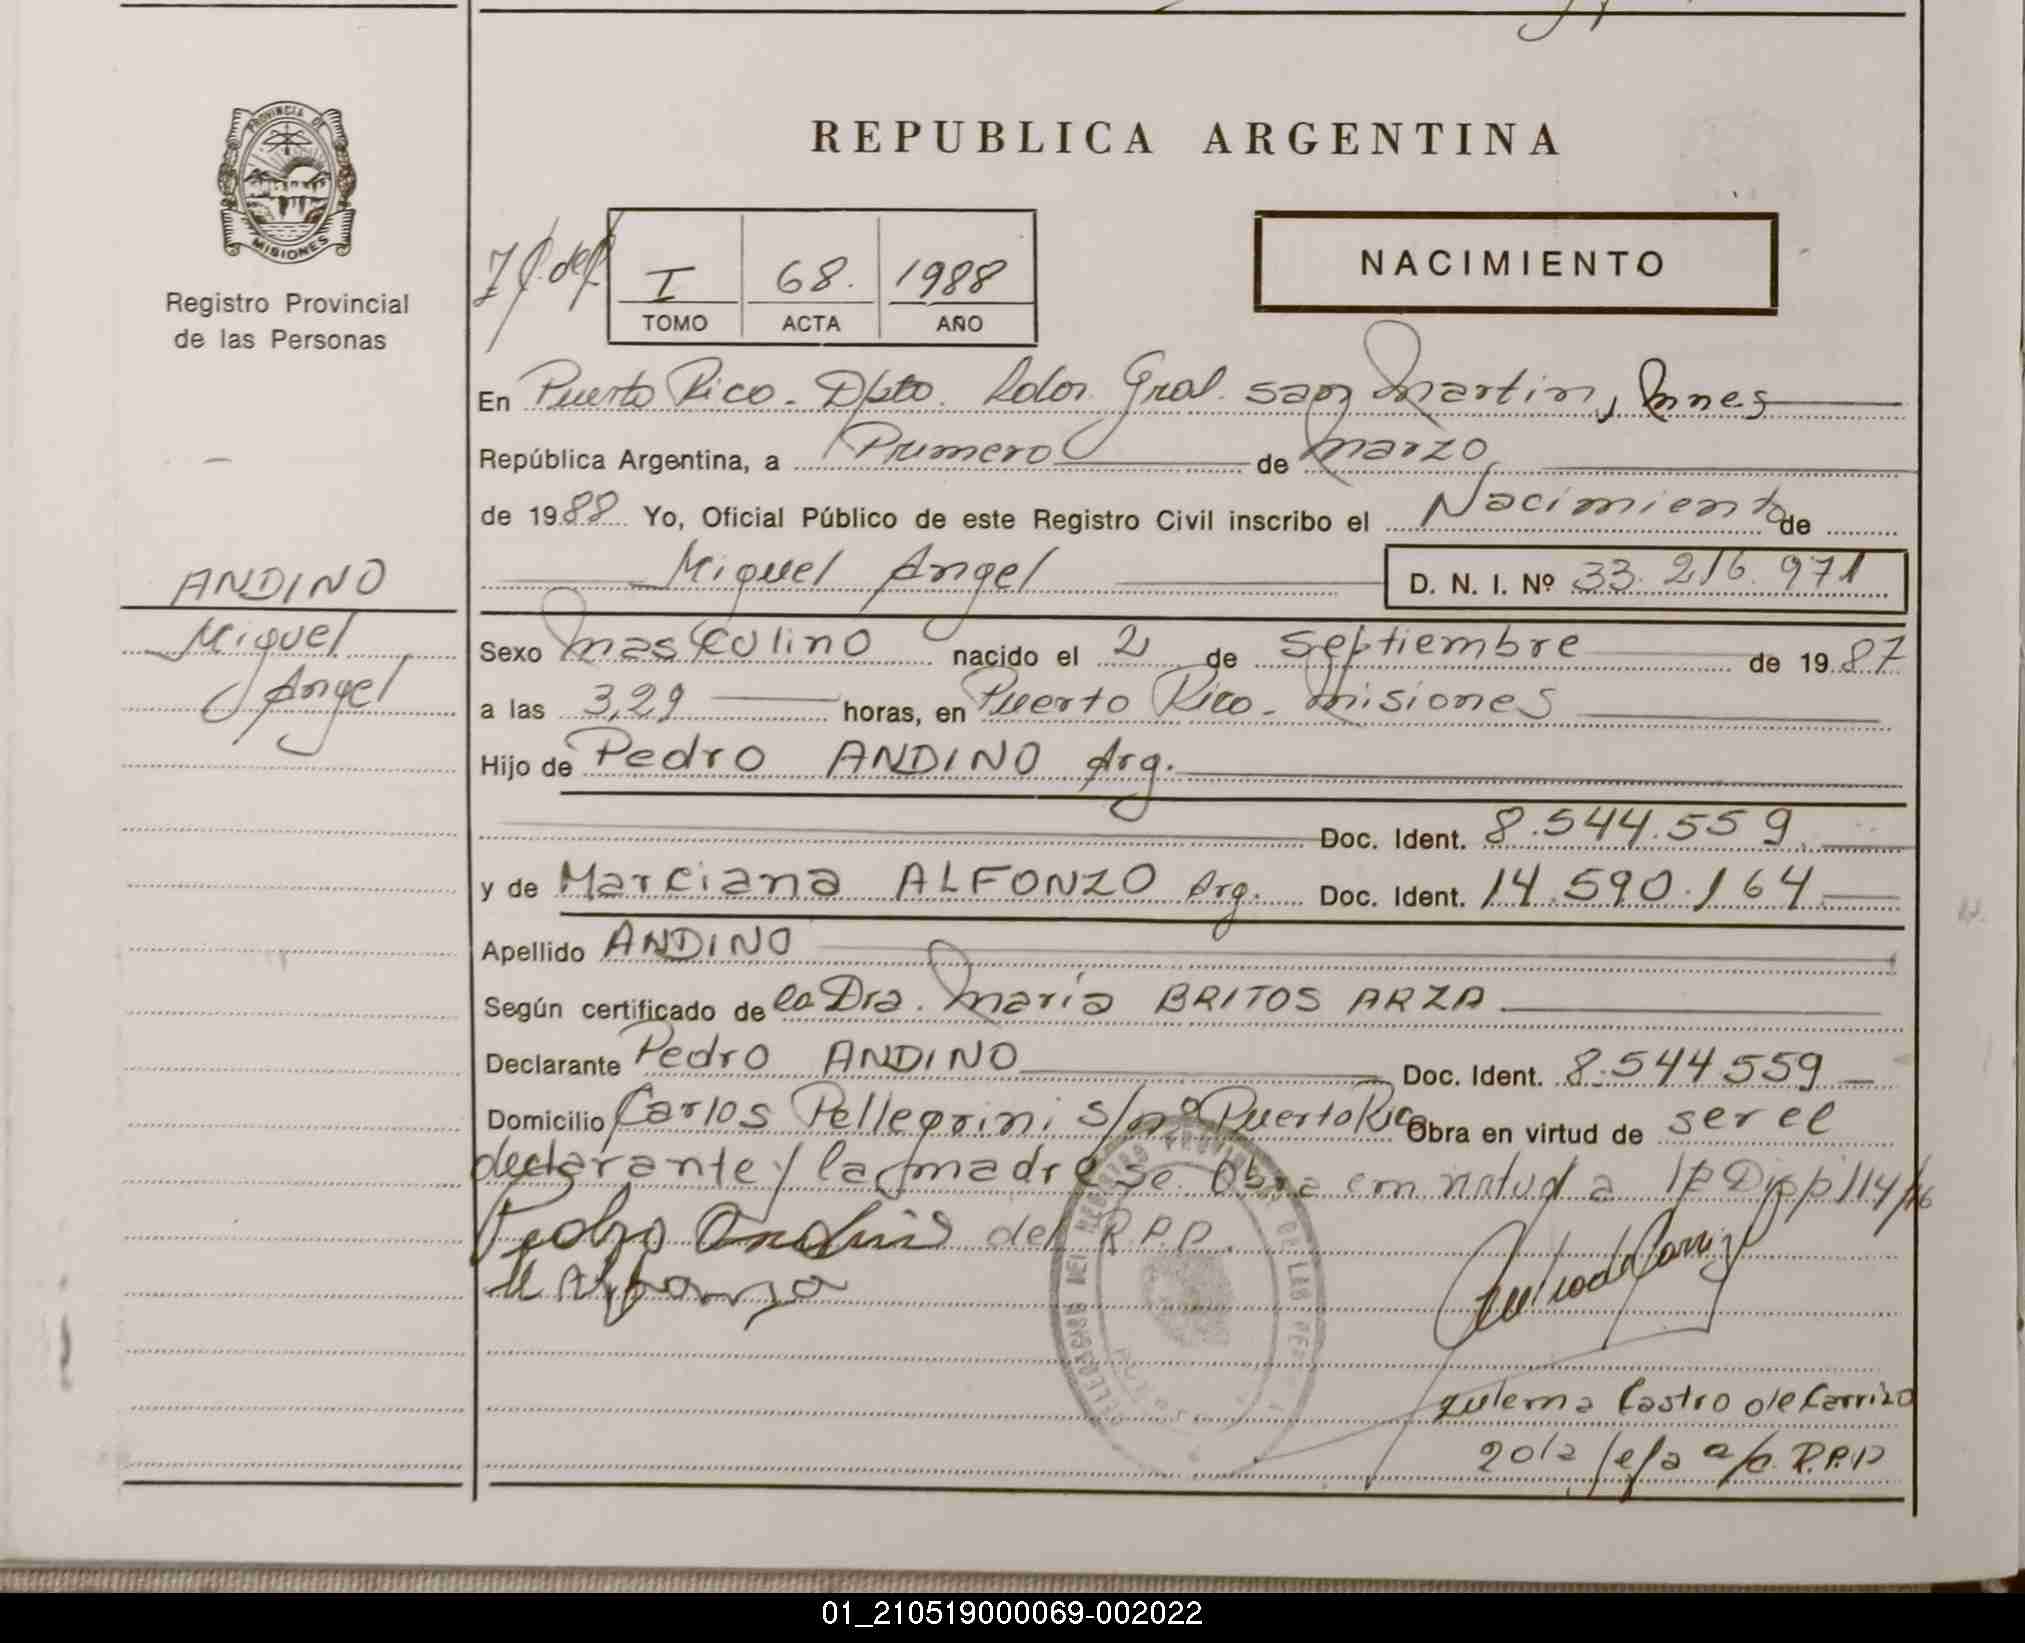 REPUBLICA ARGENTINA
PROVINCIA DE
MISIONES
Registro Provincial
de las Personas
I 68. 1988
TOMO ACTA AÑO
NACIMIENTO
En Puerto Rico - Dpto. Ldor. Gral. San Martin, Mnes
República Argentina, a Primero de Marzo
de 1988 Yo, Oficial Público de este Registro Civil inscribo el Nacimiento de
Miguel Angel D. N. I. Nº 33.216.971
ANDINO
Miguel
Angel
Sexo Masculino nacido el 2 de Septiembre de 1987
a las 3,29 horas, en Puerto Rico - Misiones
Hijo de Pedro ANDINO Arg.
Doc. Ident. 8.544.559
y de Marciana ALFONZO Arg. Doc. Ident. 14.590.164
Apellido ANDINO
Según certificado de la Dra. Maria BRITOS ARZA
Declarante Pedro ANDINO Doc. Ident. 8.544 559
Domicilio Carlos Pellegrini s/nº Puerto Rico Obra en virtud de ser el
declarante y la madre se Obra en virtud a la Disp 114/
Pedro Andino del R.P.P.
M Alfonzo
Zulema Castro de Carrizo
a/c R.P.P
01_210519000069-002022